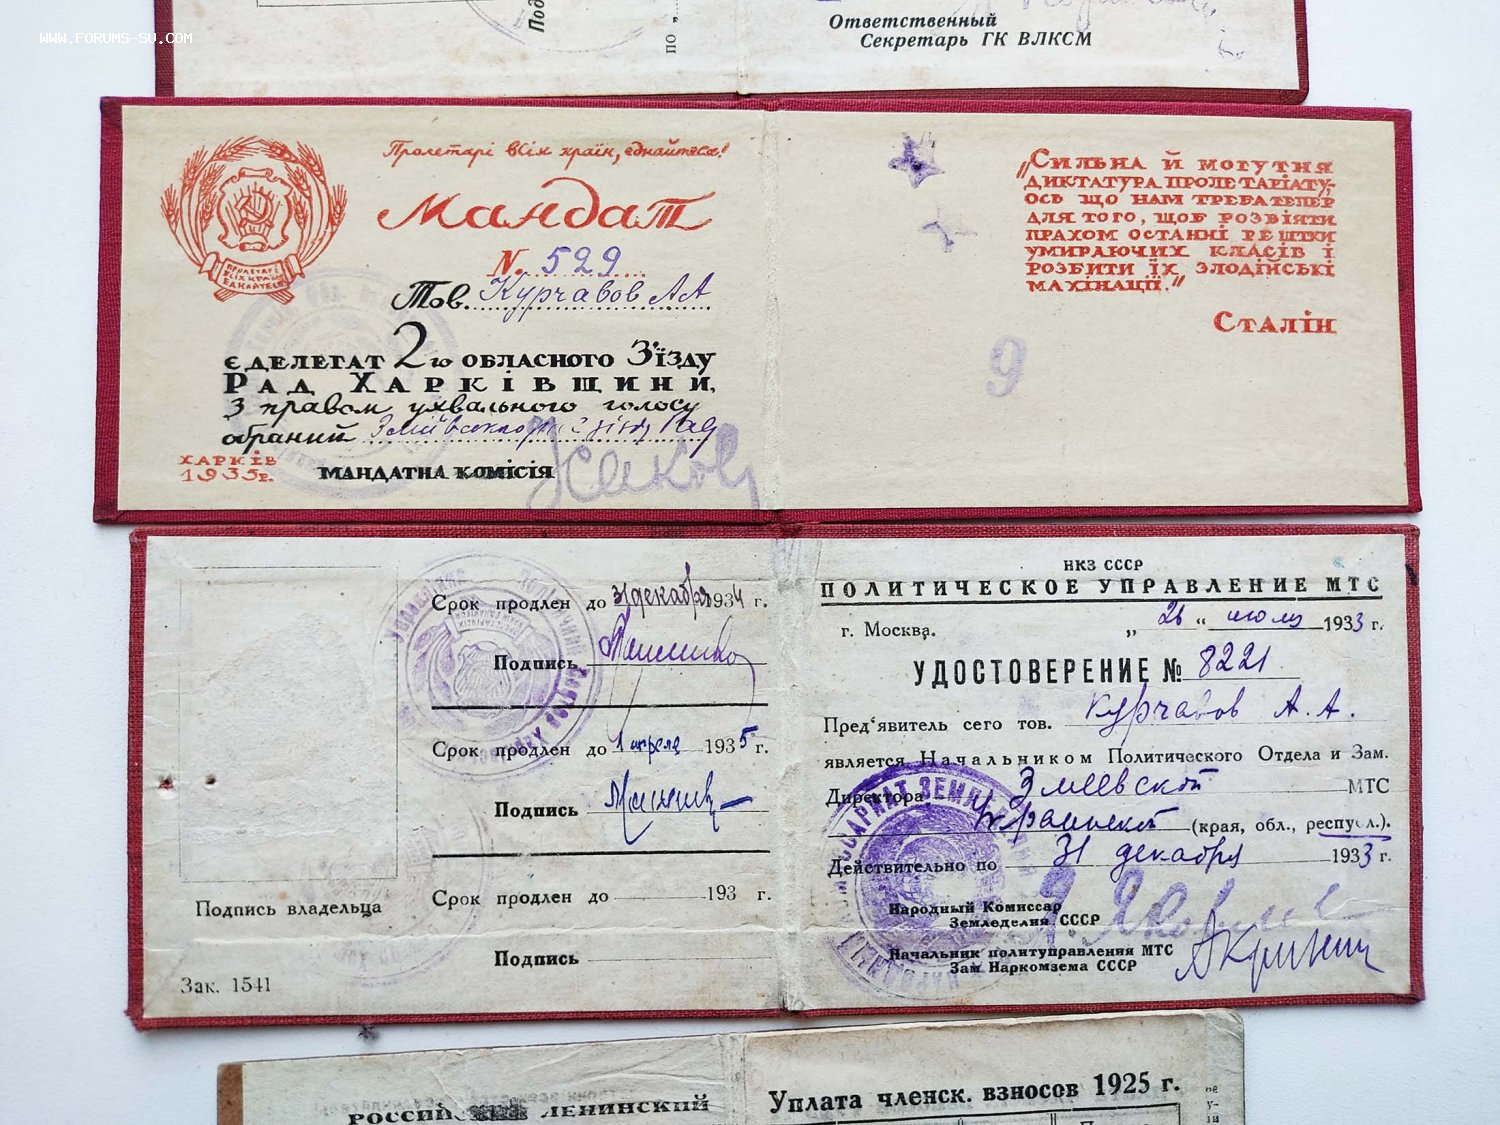 WWW.FORUMS-SU.COM
по „
Ответственный
Секретарь ГК ВЛКСМ
Пролетарі всіх країн, єднайтеся!
Мандат
N. 529
Тов. Курчавов А А
є делегат 2го обласного З'їзду
Рад Харківщини,
з правом ухвального голосу
обраний
Харків
1935 г.
Мандатна комісія
ПРОЛЕТАРІ
ВСІХ КРАЇН
ЄДНАЙТЕСЯ
„Сильна й могутня
диктатура пролетаріату,-
ось що нам треба тепер
для того, щоб розвіяти
прахом останні рештки
умираючих класів і
розбити їх злодійські
махінації."
Сталін
9
Срок продлен до 31 декабря 1934 г.
Подпись
Срок продлен до 1 апреля 1935 г.
Подпись
Срок продлен до 193 г.
Подпись
Подпись владельца
Зак. 1541
НКЗ СССР
ПОЛИТИЧЕСКОЕ УПРАВЛЕНИЕ МТС
г. Москва. „26“ июля 1933 г.
УДОСТОВЕРЕНИЕ № 8221
Пред‘явитель сего тов. Курчавов А. А.
является Начальником Политического Отдела и Зам.
Директора Змиевской МТС
Украинской (края, обл., респул.).
Действительно по 31 декабря 1933 г.
Народный Комиссар
Земледелия СССР
Начальник политуправления МТС
Зам. Наркомзема СССР
РОССИЙСКИЙ ЛЕНИНСКИЙ
Уплата членск. взносов 1925 г.